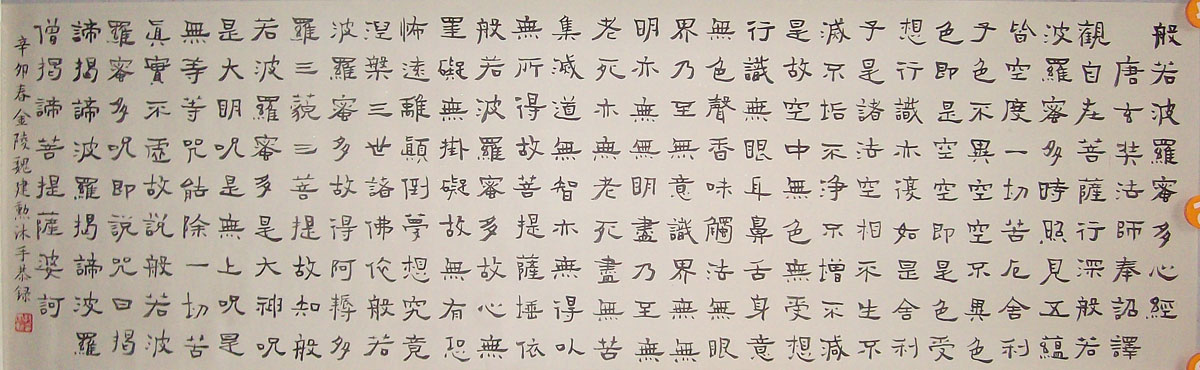 般若波羅蜜多心經
唐玄奘法師奉詔譯
觀自在菩薩行深般若
波羅蜜多時照見五蘊
皆空度一切苦厄舍利
子色不異空空不異色
色即是空空即是色受
想行識亦復如是舍利
子是諸法空相不生不
滅不垢不淨不增不減
是故空中無色無受想
行識無眼耳鼻舌身意
無色聲香味觸法無眼
界乃至無意識界無無
明亦無無明盡乃至無
老死亦無老死盡無苦
集滅道無智亦無得以
無所得故菩提薩埵依
般若波羅蜜多故心無
罣礙無掛礙故無有恐
怖遠離顛倒夢想究竟
涅槃三世諸佛依般若
波羅蜜多故得阿耨多
羅三藐三菩提故知般
若波羅蜜多是大神呪
是大明呪是無上呪是
無等等咒能除一切苦
眞實不虛故說般若波
羅蜜多呪即說咒曰揭
諦揭諦波羅揭諦波羅
僧揭諦菩提薩婆訶
辛卯春金陵魏建勳沐手恭録